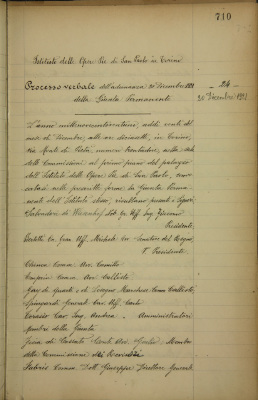 710
Istituto delle Opere Pie di San Paolo in Torino
Processo verbale dell'adunanza 20 Dicembre 1921
della Giunta Permanente
- 24 -
20 Dicembre 1921
L'anno millenovecentoventuno, addì venti del
mese di Dicembre, alle ore diciassette, in Torino,
via Monte di Pietà, numero trentadue, nella sala
delle Commissioni al primo piano del palazzo
dell'Istituto delle Opere Pie di San Paolo, convo-
catasi nelle prescritte forme la Giunta Perma-
nente dell'Istituto stesso, risultano presenti i Signori
Presidente
Gr. Uff. Michele Senatore del Regno,
V. Presidente
Comm. Avv. Camillo
Comm. Avv. Callisto
Marchese Comm. Callisto,
Cav. Uff. Carlo
Cav. Ing. Andrea - Amministratori
Membri della Giunta
Conte Avv. Membro
della Commissione
Comm. Dott. Giuseppe Direttore Generale